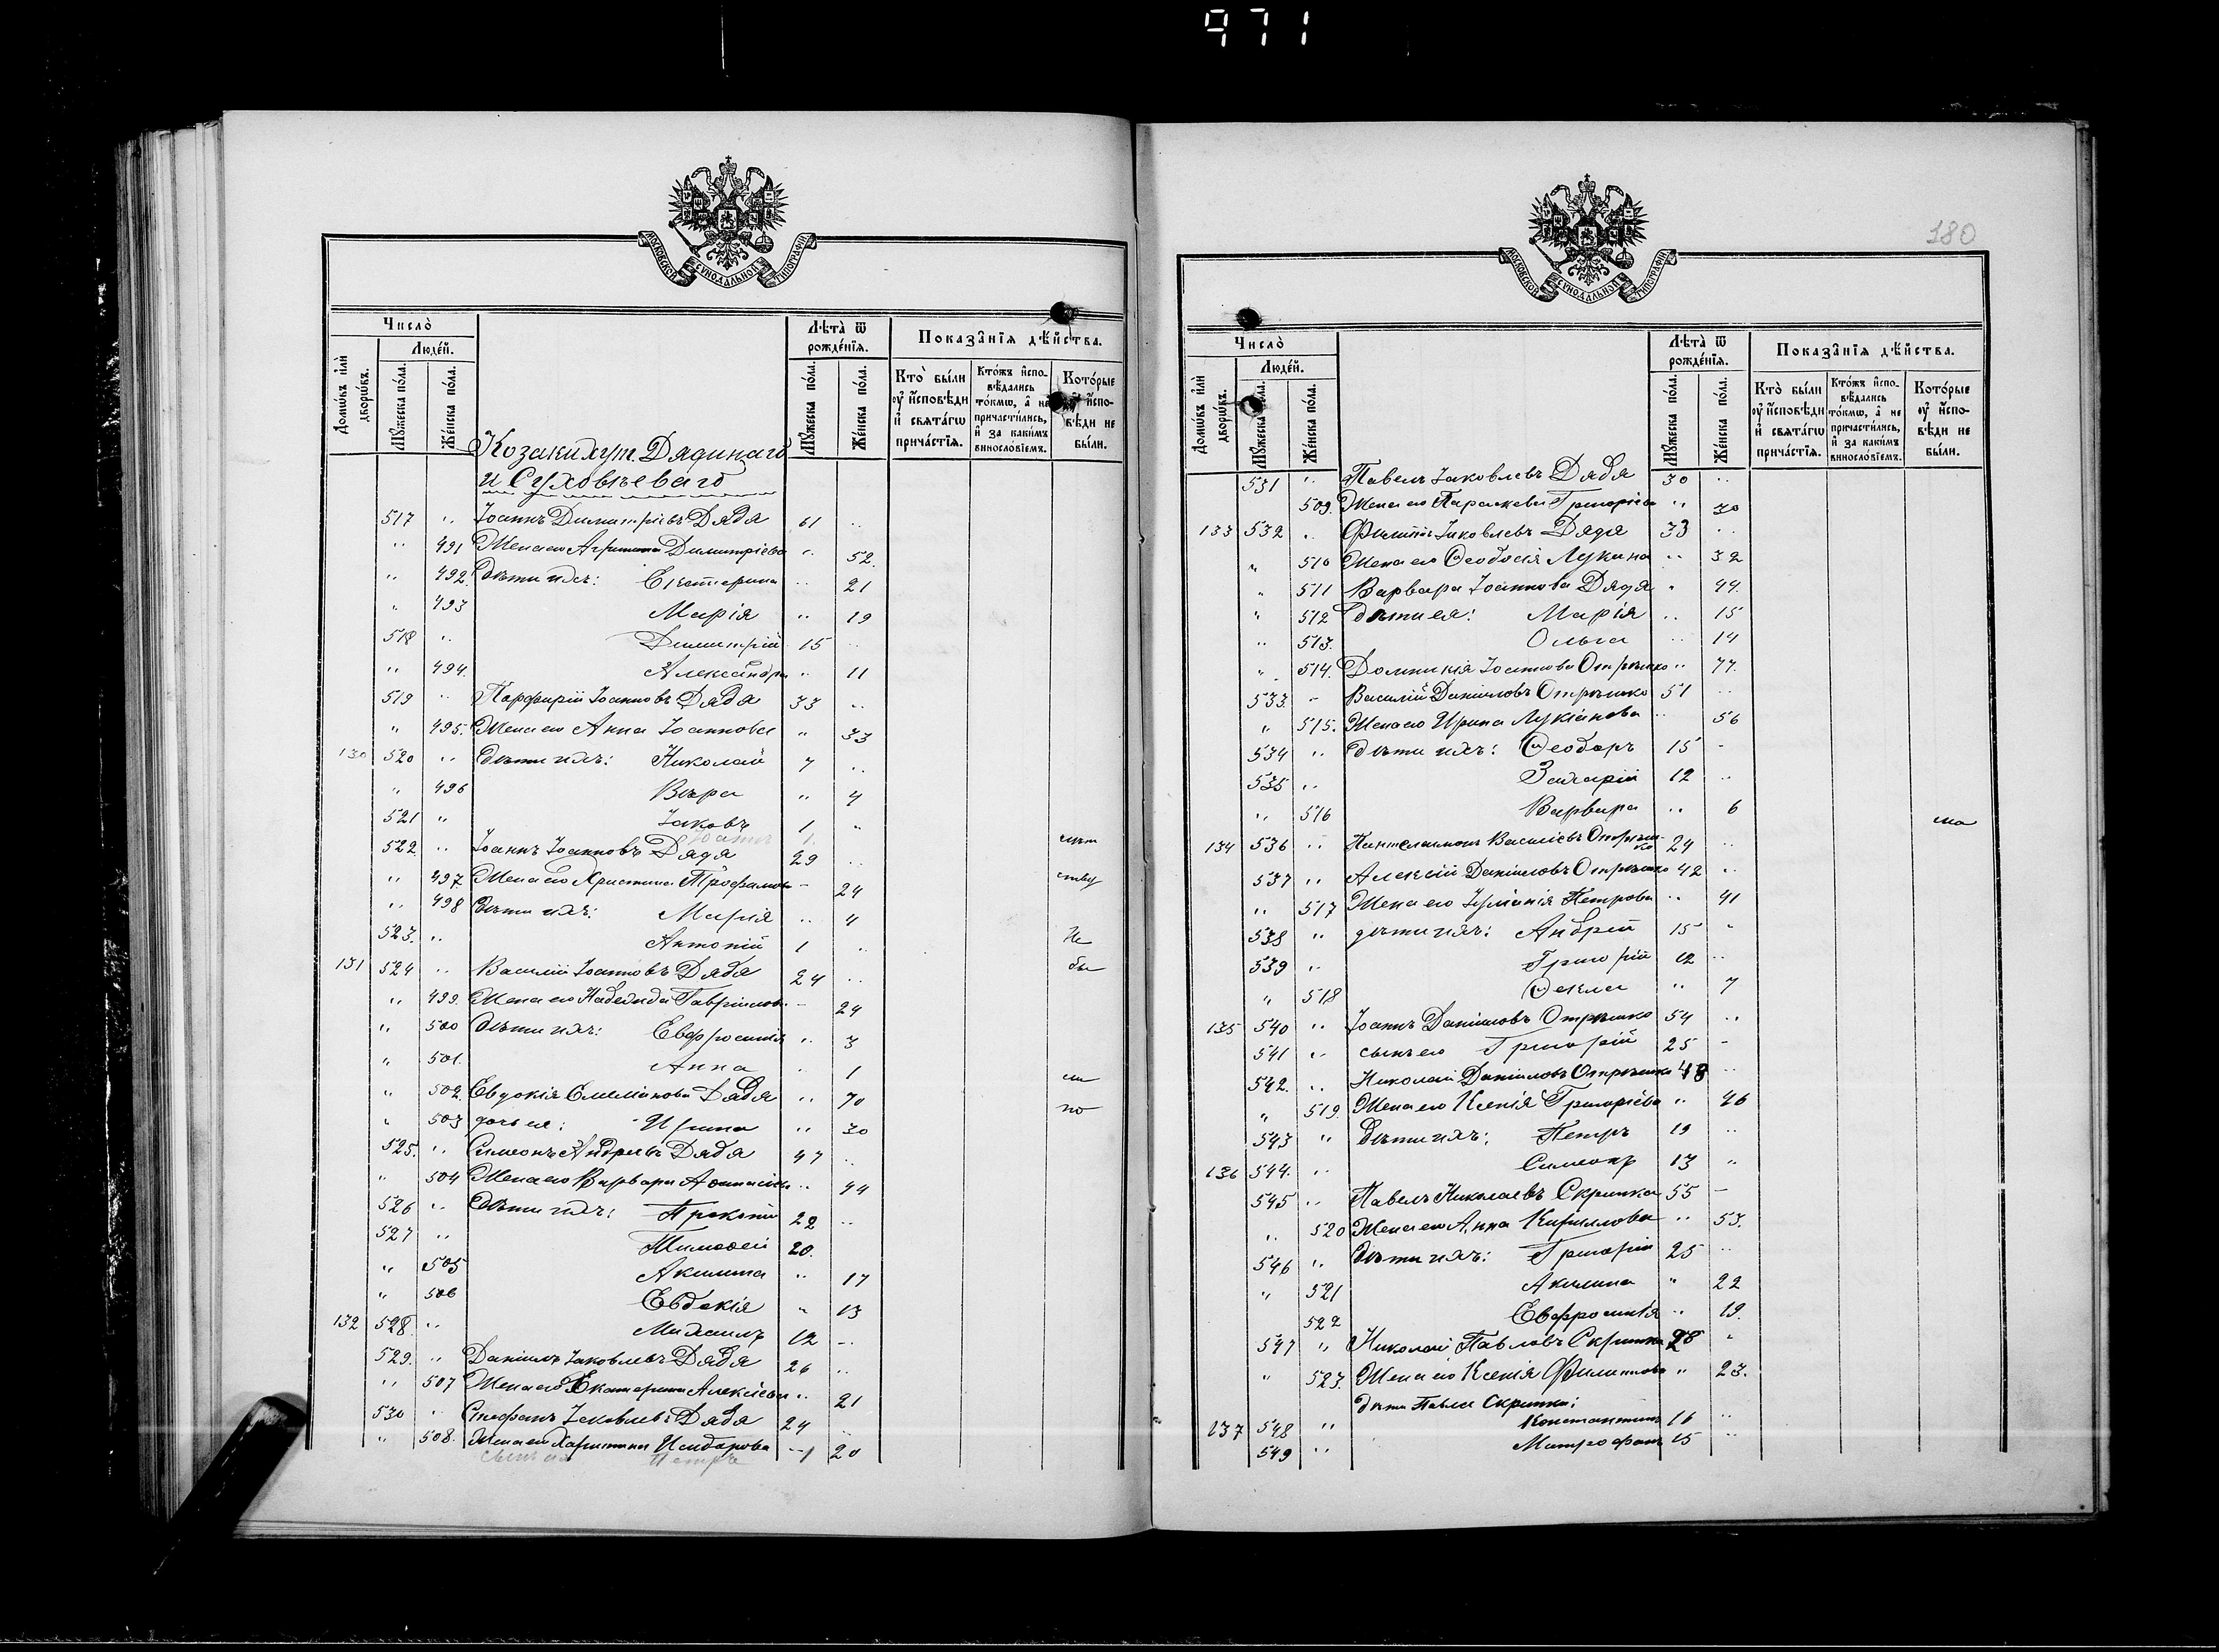 971
МОСКОВСКОЙ СУНОДАЛЬНОЙ ТИПОГРАФІИ
Число̀
Домѡ́въ и҆лѝ дворѡ́въ.
Люде́й.
Мꙋ́жеска по́ла.
Же́нска по́ла.
Лѣ́та ѿ рожде́нїѧ.
Мꙋ́жеска по́ла.
Же́нска по́ла.
Показа̂нїѧ дѣ́йства.
Кто̀ бы́ли ᲂу҆ и҆сповѣ́ди и҆ свѧта́гѡ прича́стїѧ.
Кто́жъ и҆сповѣ́дались то́кмѡ, а҆ не причасти́лись, и҆ за каки́мъ винослові́емъ.
Кото́рые ᲂу҆ и҆сповѣ́ди не бы́ли.
Козаки хут. Дядинаго
и Суховѣеваго
517 " Іоаннъ Димитріевъ Дядя 61 "
" 491 Жена его Димитріева " 52.
" 492. Дѣти ихъ: Екатерина " 21
" 493 Марія " 19
518 " Димитрій 15 "
" 494. Александра " 11
519 " Порфирій Іоанновъ Дядя 33 "
" 495. Жена его Анна Іоаннова " 33
130 520 " Дѣти ихъ: Николай 7 "
" 496 Вѣра " 4
521 " Іаковъ 1 "
Іоаннъ 1.
522. " Іоаннъ Іоанновъ Дядя 29 "
" 497 Жена его Христина Трофимова - 24
" 498 Дѣти ихъ: Марія " 4
523. " Антоній 1 " Не
131 524 " Василій Іоанновъ Дядя 24 " бы
" 499. Жена его Надежда Гавріилова - 24
" 500 Дѣти ихъ: Евфросинія " 3
" 501. Анна " 1
" 502. Евдокія Емеліанова Дядя " 70
" 503 дочь ея: Ирина " 30 по
525. " Симеонъ Андреевъ Дядя 47 "
" 504 Жена его Варвара " 44
526 " Дѣти ихъ: Прокопій 22 "
527 " Тимоѳей 20.
" 505 Акилина " 17
" 506 Евдокія " 13
132 528. " Михаилъ 12 -
529. " Даніилъ Іаковлевъ Дядя 26 "
" 507 Жена его Екатерина Алексіева " 21
530 " Стефанъ Іаковлевъ Дядя 24 "
" 508. Жена его Харитина Исидорова - 20
сынъ ихъ Петръ
180
МОСКОВСКОЙ СУНОДАЛЬНОЙ ТИПОГРАФІИ
Число̀
Домѡ́въ и҆лѝ дворѡ́въ.
Люде́й.
Мꙋ́жеска по́ла.
Же́нска по́ла.
Лѣ́та ѿ рожде́нїѧ.
Мꙋ́жеска по́ла.
Же́нска по́ла.
Показа̂нїѧ дѣ́йства.
Кто̀ бы́ли ᲂу҆ и҆сповѣ́ди и҆ свѧта́гѡ прича́стїѧ.
Кто́жъ и҆сповѣ́дались то́кмѡ, а҆ не причасти́лись, и҆ за каки́мъ винослові́емъ.
Кото́рые ᲂу҆ и҆сповѣ́ди не бы́ли.
531 " Павелъ Іаковлевъ Дядя 30 "
509. Жена его Параскева Григоріева " 30
133 532 " Филиппъ Іаковлевъ Дядя 33 "
" 510 Жена его Ѳеодосія Лукина " 32
" 511 Варвара Іоаннова Дядя " 44.
" 512 дѣти ея: Марія " 15
" 513. Ольга " 14
" 514. Домникія Іоаннова Отрѣшко " 77.
533. - Василій Даніиловъ Отрѣшко 51 "
" 515. Жена его Ирина Лукіанова " 56
534 " Дѣти ихъ: Ѳеодоръ 15 -
535 " Захарій 12 "
" 516 Варвара " 6
134 536 " Пантелеимонъ Василіевъ Отрѣшко 24 "
537 " Алексій Даніиловъ Отрѣшко 42 "
" 517 Жена его Іуліанія Петрова " 41
538 " дѣти ихъ: Андрей 15 "
539 " Григорій 12 "
" 518 Ѳекла " 7
135 540 " Іоаннъ Даніиловъ Отрѣшко 54 "
541 " сынъ его Григорій 25 -
542. " Николай Даніиловъ Отрѣшко 48 "
" 519. Жена его Ксенія Григоріева " 46
543 " Дѣти ихъ: Петръ 19 "
136 544. " Симеонъ 13 "
545 " Павелъ Николаевъ Скрипка 55 -
" 520 Жена его Анна Кириллова " 53.
546 " Дѣти ихъ: Григорій 25 "
" 521 Акилина " 22
522 Евфросинія " 19.
547 " Николай Павловъ Скрипка 28 "
" 523. Жена его Ксенія Филиппова " 23.
дѣти Павла Скрипки:
137 548 " Константинъ 16 "
549 " Митрофанъ 15 "